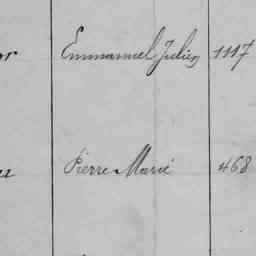 or Emmanuel Julien 1117
Pierre Marie 468